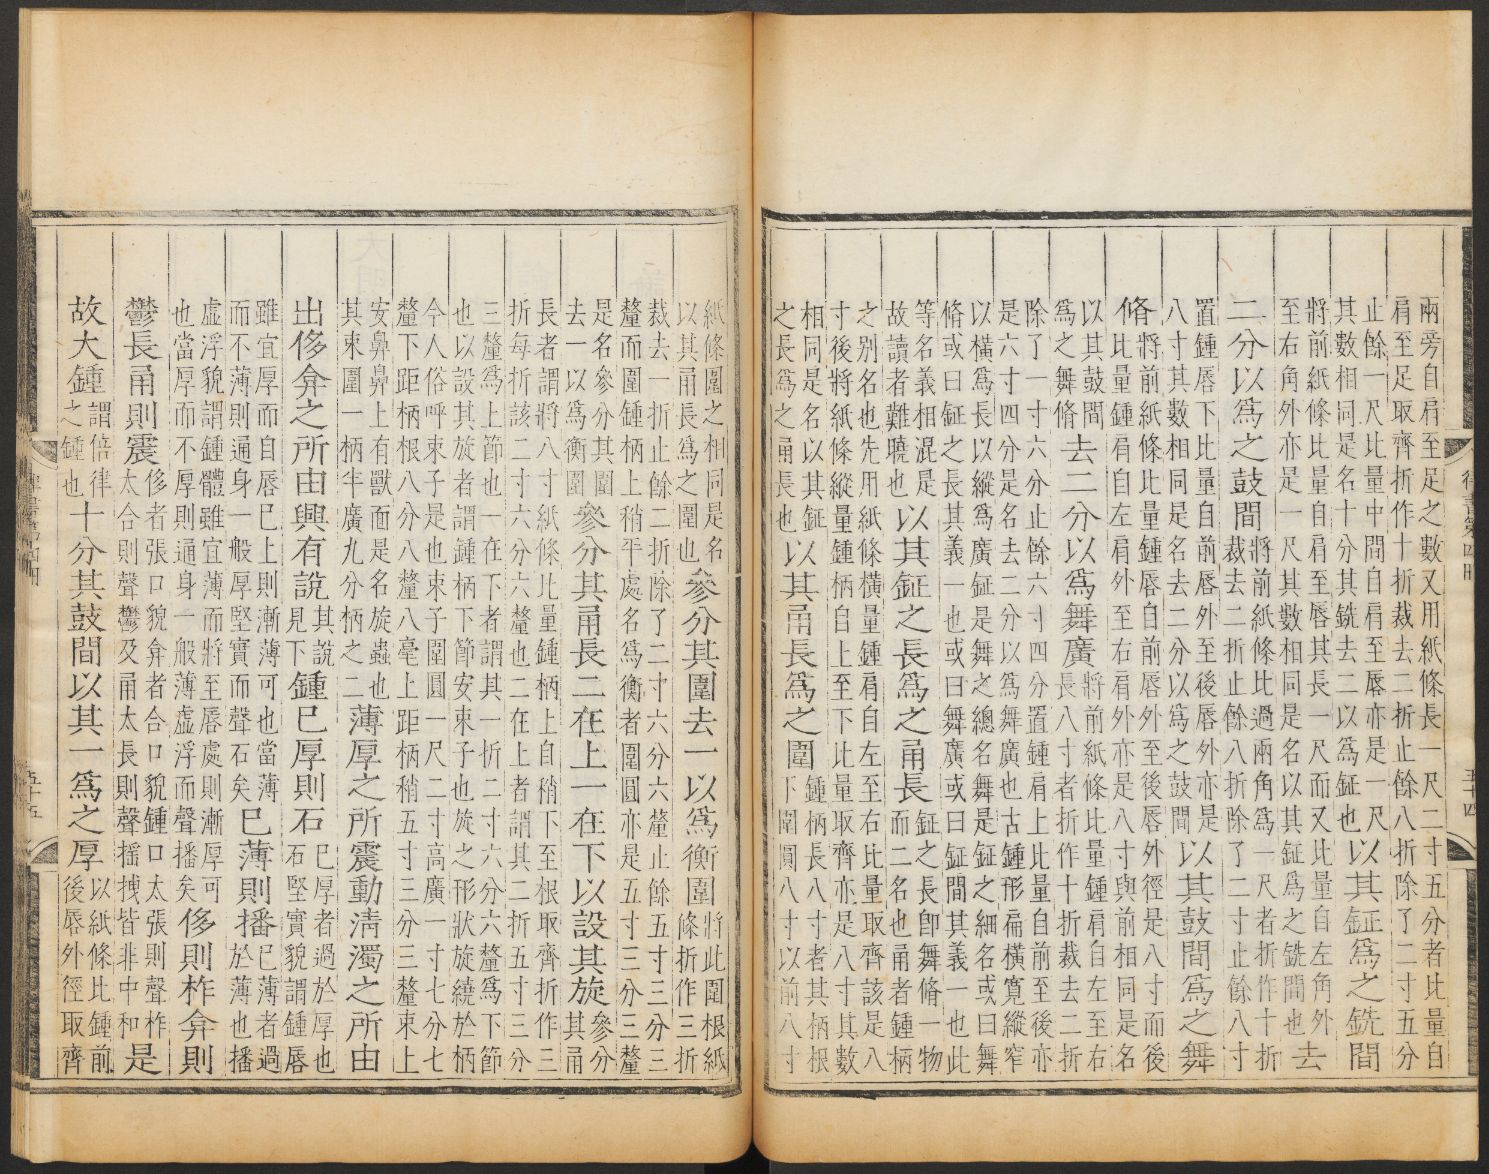 兩旁自肩至足之數又用紙條長一尺二寸五分者比量自
肩至足取齊折作十折裁去二折止餘八折除了二寸五分
止餘一尺比量中間自肩至唇亦是一尺
其數相同是名十分其銑去二以爲鉦也
以其鉦爲之銑間
將前紙條比量自肩至唇其長一尺而又比量自左角外
至右角外亦是一尺其數相同是名以其鉦爲之銑間也
去
二分以爲之鼓間
將前紙條比過兩角爲一尺者折作十折
裁去二折止餘八折除了二寸止餘八寸
置鍾唇下比量自前唇外至後唇外亦是
八寸其數相同是名去二分以爲之鼓間
以其鼓間爲之舞
脩
將前紙條比量鍾唇自前唇外至後唇外徑是八寸而後
比量鍾肩自左肩外至右肩外亦是八寸與前相同是名
以其鼓間
爲之舞脩
去二分以爲舞廣
將前紙條比量鍾肩自左至右
長八寸者折作十折裁去二折
除了一寸六分止餘六寸四分置鍾肩上比量自前至後亦
是六寸四分是名去二分以爲舞廣也古鍾形扁橫寬縱窄
以橫爲長以縱爲廣鉦是舞之總名舞是鉦之細名或曰舞
脩或曰鉦之長其義一也或曰舞廣或曰鉦間其義一也此
等名義相混是
故讀者難曉也
以其鉦之長爲之甬長
鉦之長卽舞脩一物
而二名也甬者鍾柄
之別名也先用紙條橫量鍾肩自左至右比量取齊該是八
寸後將紙條縱量鍾柄自上至下比量取齊亦是八寸其數
相同是名以其鉦
之長爲之甬長也
以其甬長爲之圍
鍾柄長八寸者其柄根
下圍圓八寸以前八寸
律書第四冊
五十四
紙條圍之相同是名
以其甬長爲之圍也
參分其圍去一以爲衡圍
將此圍根紙
條折作三折
裁去一折止餘二折除了二寸六分六釐止餘五寸三分三
釐而圍鍾柄上稍平處名爲衡者圍圓亦是五寸三分三釐
是名參分其圍
去一以爲衡圍
參分其甬長二在上一在下以設其旋
參分
其甬
長者謂將八寸紙條比量鍾柄上自稍下至根取齊折作三
折每折該二寸六分六釐也二在上者謂其二折五寸三分
三釐爲上節也一在下者謂其一折二寸六分六釐爲下節
也以設其旋者謂鍾柄下節安束子也旋之形狀旋繞於柄
今人俗呼束子是也束子圍圓一尺二寸高廣一寸七分七
釐下距柄根八分八釐八毫上距柄稍五寸三分三釐束上
安鼻鼻上有獸面是名旋蟲也
其束圍一柄半廣九分柄之二
薄厚之所震動淸濁之所由
出侈弇之所由興有說
其說
見下
鍾已厚則石
已厚者過於厚也
石堅實貌謂鍾唇
雖宜厚而自唇已上則漸薄可也當薄
而不薄則通身一般厚堅實而聲石矣
已薄則播
已薄者過
於薄也播
虛浮貌謂鍾體雖宜薄而將至唇處則漸厚可
也當厚而不厚則通身一般薄虛浮而聲播矣
侈則柞弇則
鬱長甬則震
侈者張口貌弇者合口貌鍾口太張則聲柞
太合則聲鬱及甬太長則聲搖拽皆非中和
是
故大鍾
謂倍律
之鍾也
十分其鼓間以其一爲之厚
以紙條比鍾前
後唇外徑取齊
五十五